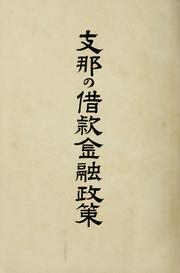 支那の借款金融政策